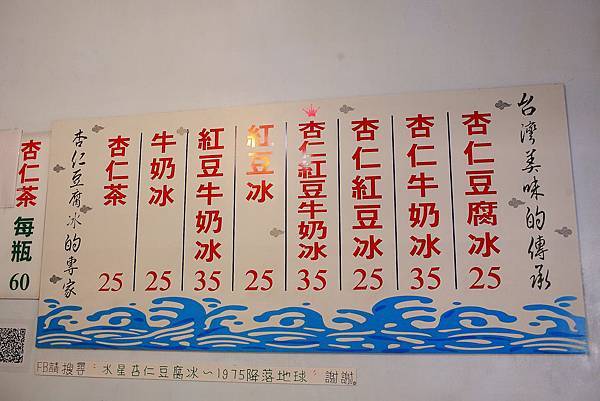 台灣美味的傳承
杏仁豆腐冰
25
杏仁牛奶冰
25
杏仁紅豆冰
25
杏仁紅豆牛奶冰
35
紅豆冰
25
紅豆牛奶冰
35
牛奶冰
25
杏仁茶
25
杏仁豆腐冰的專家
杏仁茶
每瓶
60
FB請搜尋：水星杏仁豆腐冰～1975降落地球 謝謝。